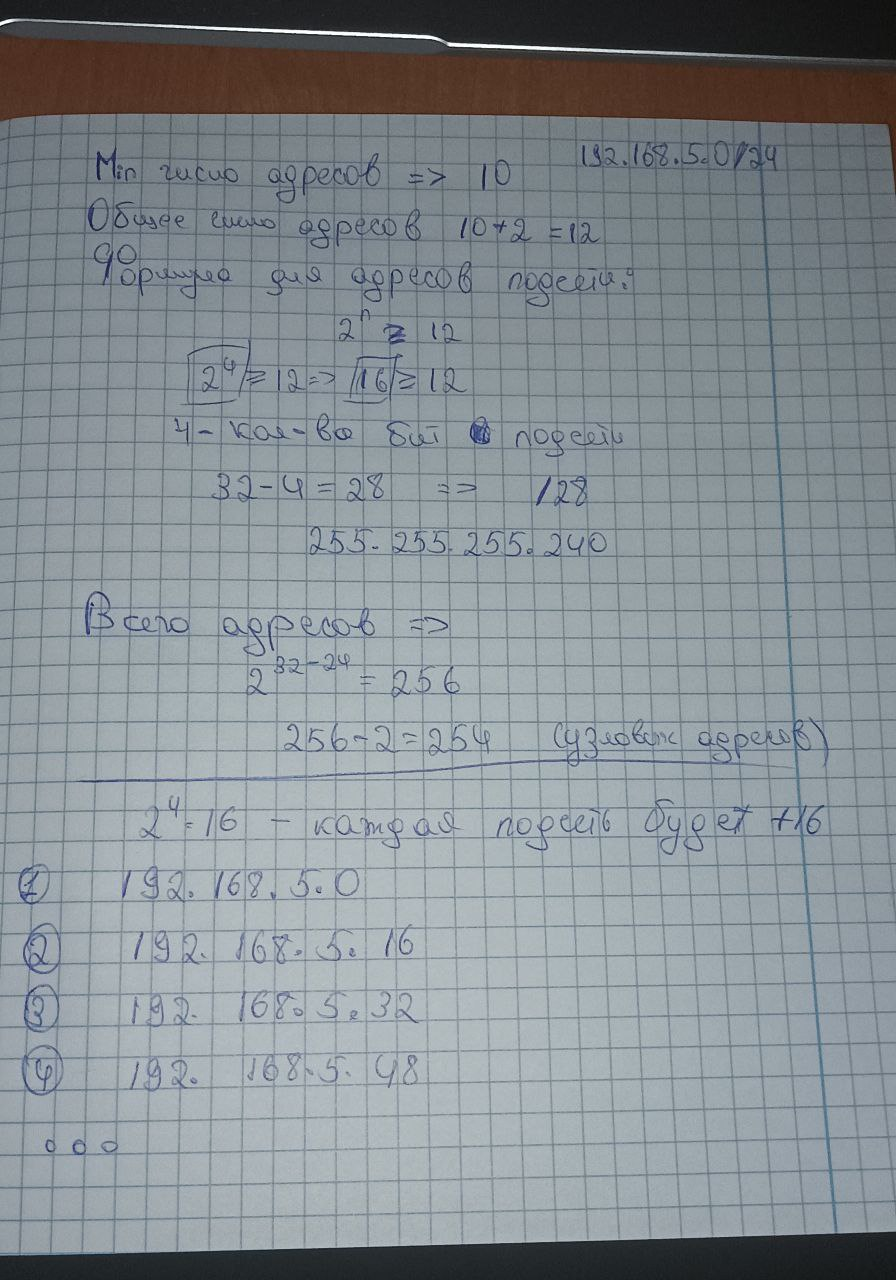 Min число адресов => 10 192.168.5.0/24
Общее число адресов 10+2 =12
Формула для адресов подсети:
2ⁿ ≥ 12
2⁴ ≥ 12 => 16 ≥ 12
4 - кол-во бит подсети
32-4 = 28 => /28
255.255.255.240
Всего адресов =>
2³²⁻²⁴ = 256
256-2=254 (узловых адресов)
2⁴=16 - каждая подсеть будет +16
1 192.168.5.0
2 192.168.5.16
3 192.168.5.32
4 192.168.5.48
ооо